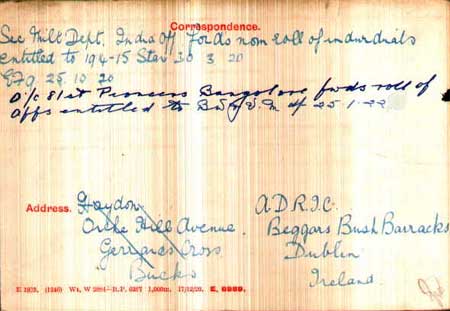 Correspondence.
Sec Milt Dept. India Off. fwds nom roll of individuals
entitled to 194-15 Star 30 3 20
O/c 81st Pioneers Bangalore fwds roll of
Offs entitled to B.W & V.M d/ 25.1.22
Address.
Haydon
Orche Hill Avenue.
Gerrards Cross
Bucks
A.D.R.I.C.
Beggars Bush Barracks
Dublin
Ireland.
E 1973. (1240) Wt. W 2884—R.P. 6287 1,000m. 17/12/20. E. 6989.